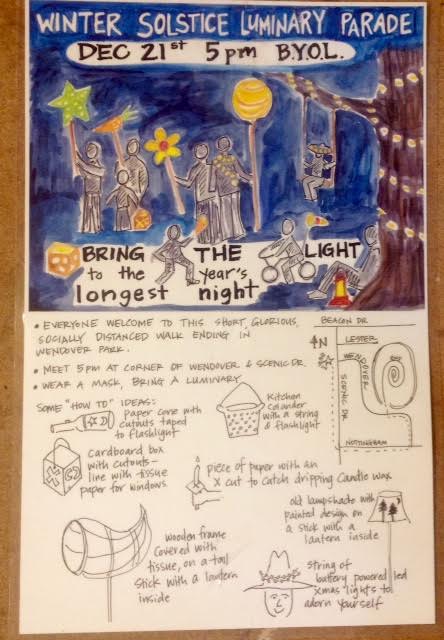 WINTER SOLSTICE LUMINARY PARADE
DEC 21st 5pm B.Y.O.L.
BRING THE LIGHT
to the year's
longest night
• EVERYONE WELCOME TO THIS SHORT, GLORIOUS,
SOCIALLY DISTANCED WALK ENDING IN
WENDOVER PARK.
• MEET 5PM AT CORNER OF WENDOVER & SCENIC DR.
• WEAR A MASK, BRING A LUMINARY
BEACON DR
LESTER
N
WENDOVER
SCENIC DR.
NOTTINGHAM
SOME "HOW TO" IDEAS:
paper cone with
cutouts taped
to flashlight
Kitchen
colander
with a string
& flashlight
cardboard box
with cutouts -
line with tissue
paper for windows
piece of paper with an
X cut to catch dripping candle wax
old lampshade with
painted design on
a stick with a
lantern inside
wooden frame
covered with
tissue, on a tall
stick with a lantern
inside
string of
battery powered led
xmas lights to
adorn yourself